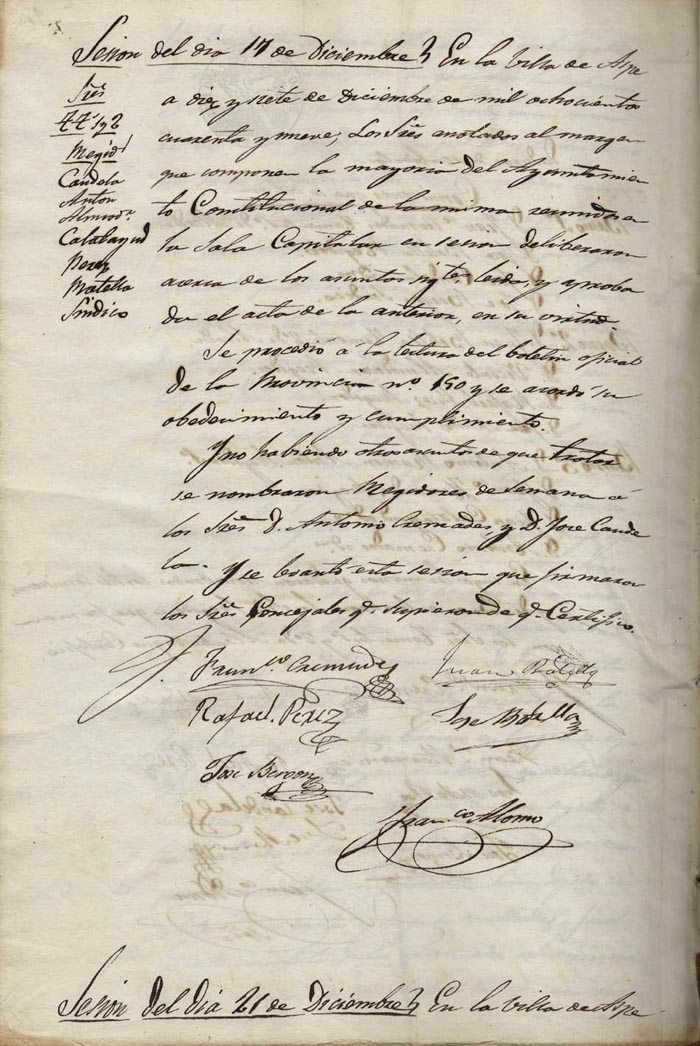 Sesion del dia 17 de Diciembre En la Villa de Aspe
Sres
Candela
Anton
Almod.
Calatayud
Perez
Botella
Sindico
a diez y siete de Diciembre de mil ochocientos
cuarenta y nueve; Los Sres anotados al margen
que componen la mayoria del Ayuntamien
to Constitucional de la misma reunidos en
la Sala Capitular en sesion deliberaron
acerca de los asuntos sigtes leida, y aproba
da el acta de la anterior, en su virtud.
Se procedió á la lectura del boletin oficial
de la Provincia nº 150 y se acordó su
obedecimiento y cumplimiento.
Y no habiendo otros asuntos de que tratar
se nombraron Regidores de Semana á
los Sres D. Antonio Cremades, y D. Jose Cande
la. Y se levantó esta sesion que firmaron
los Sres Concejales q. supieron de q. Certifico.
Franco Cremades
Juan Botella
Rafael Perez
Jose Botella
Jose
Franco Alonso
Sesion del dia 21 de Diciembre En la Villa de Aspe